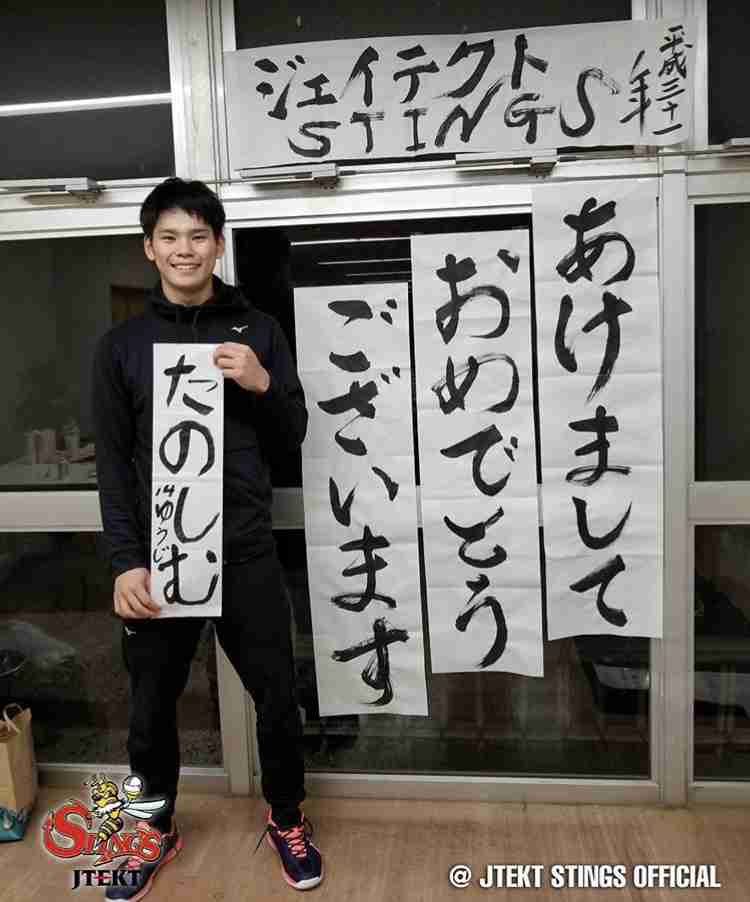 ジェイテクト
STINGS
平成三十一年
あけまして
おめでとう
ございます
たのしむ
14ゆうじ
STINGS
JTEKT
@ JTEKT STINGS OFFICIAL